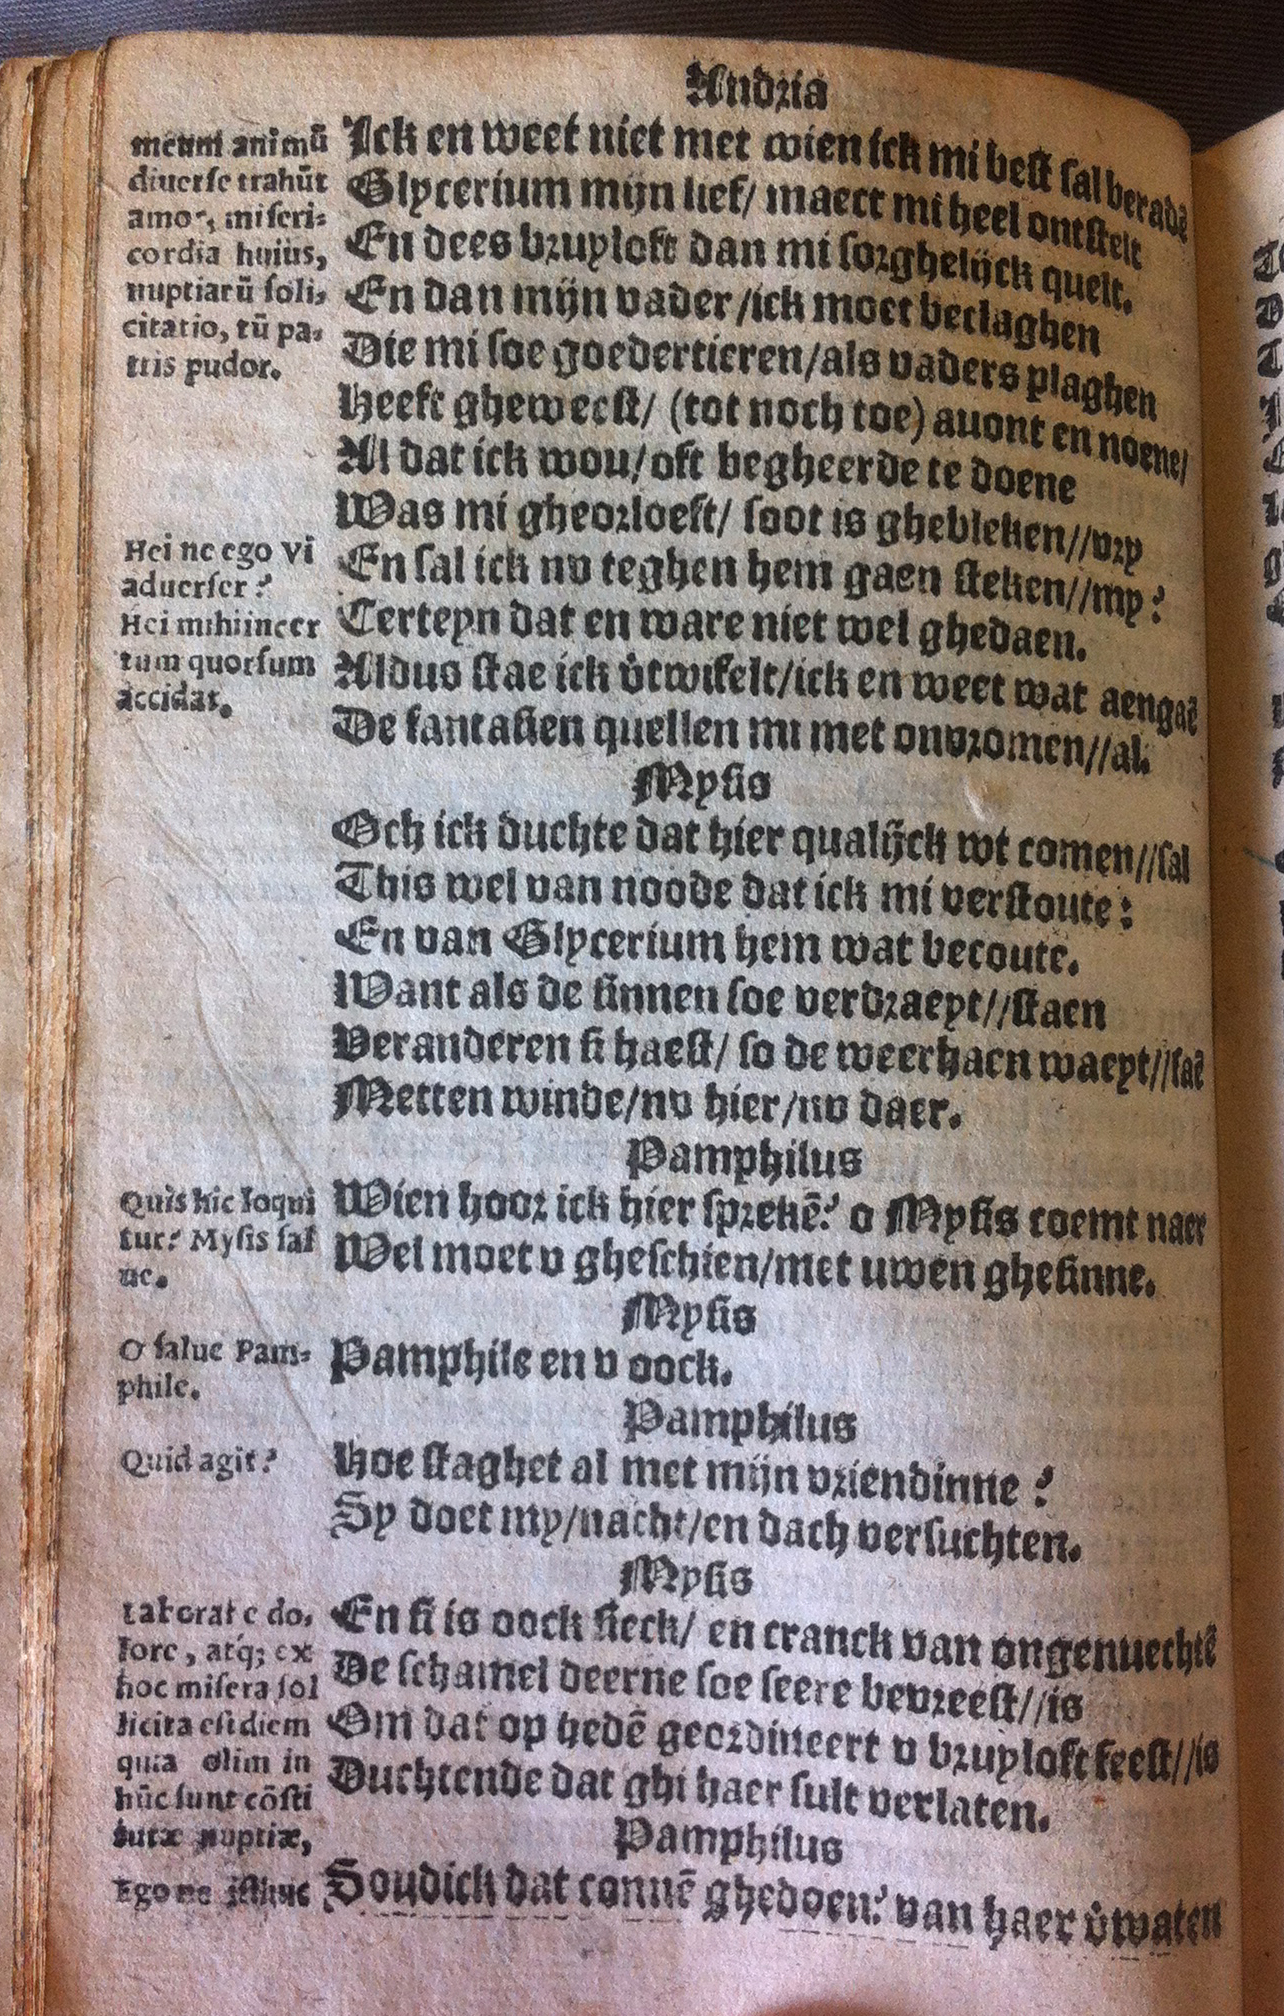 Andria
meum animū
diuerse trahūt
amor, miseri-
cordia huius,
nuptiarū soli-
citatio, tū pa-
tris pudor.
Ick en weet niet met wien ick mi best sal beradē
Glycerium mijn lief/ maect mi heel ontstelt
En dees bruyloft dan mi sorghelijck quelt.
En dan mijn vader/ick moet beclaghen
Die mi soe goedertieren/als vaders plaghen
Heeft gheweest/ (tot noch toe) auont en noene/
Al dat ick wou/oft begheerde te doene
Was mi gheorloeft/ soot is ghebleken//vry
Hei ne ego vt
aduerser?
Hei mihi incer
tum quorsum
accidat.
En sal ick nv teghen hem gaen steken//my?
Certeyn dat en ware niet wel ghedaen.
Aldus stae ick v̉twifelt/ick en weet wat aengaē
De fantasien quellen mi met onvromen//al.
Mysis
Och ick duchte dat hier qualijck wt comen//sal
This wel van noode dat ick mi verstoute:
En van Glycerium hem wat becoute.
Want als de sinnen soe verdraeyt//staen
Veranderen si haest/ so de weerhaen waeyt//saē
Metten winde/nv hier/nv daer.
Pamphilus
Quis hic loqui
tur? Mysis sal
ue.
Wien hoor ick hier sprekē? o Mysis coemt naer
Wel moet v gheschien/met uwen ghesinne.
Mysis
O salue Pam-
phile.
Pamphile en v oock.
Pamphilus
Quid agit?
Hoe staghet al met mijn vriendinne?
Sy doet my/nacht/en dach versuchten.
Mysis
Laborat e do-
lore, atq; ex
hoc misera sol
licita est diem
quia olim in
hūc sunt cōsti
tutæ nuptiæ,
En si is oock sieck/ en cranck van ongenuechtē
De schamel deerne soe seere bevreest//is
Om dat op hedē geordineert v bruyloft feest//is
Duchtende dat ghi haer sult verlaten.
Pamphilus
Ego ne isthuc
Soudick dat connē ghedoen? van haer v̉waten